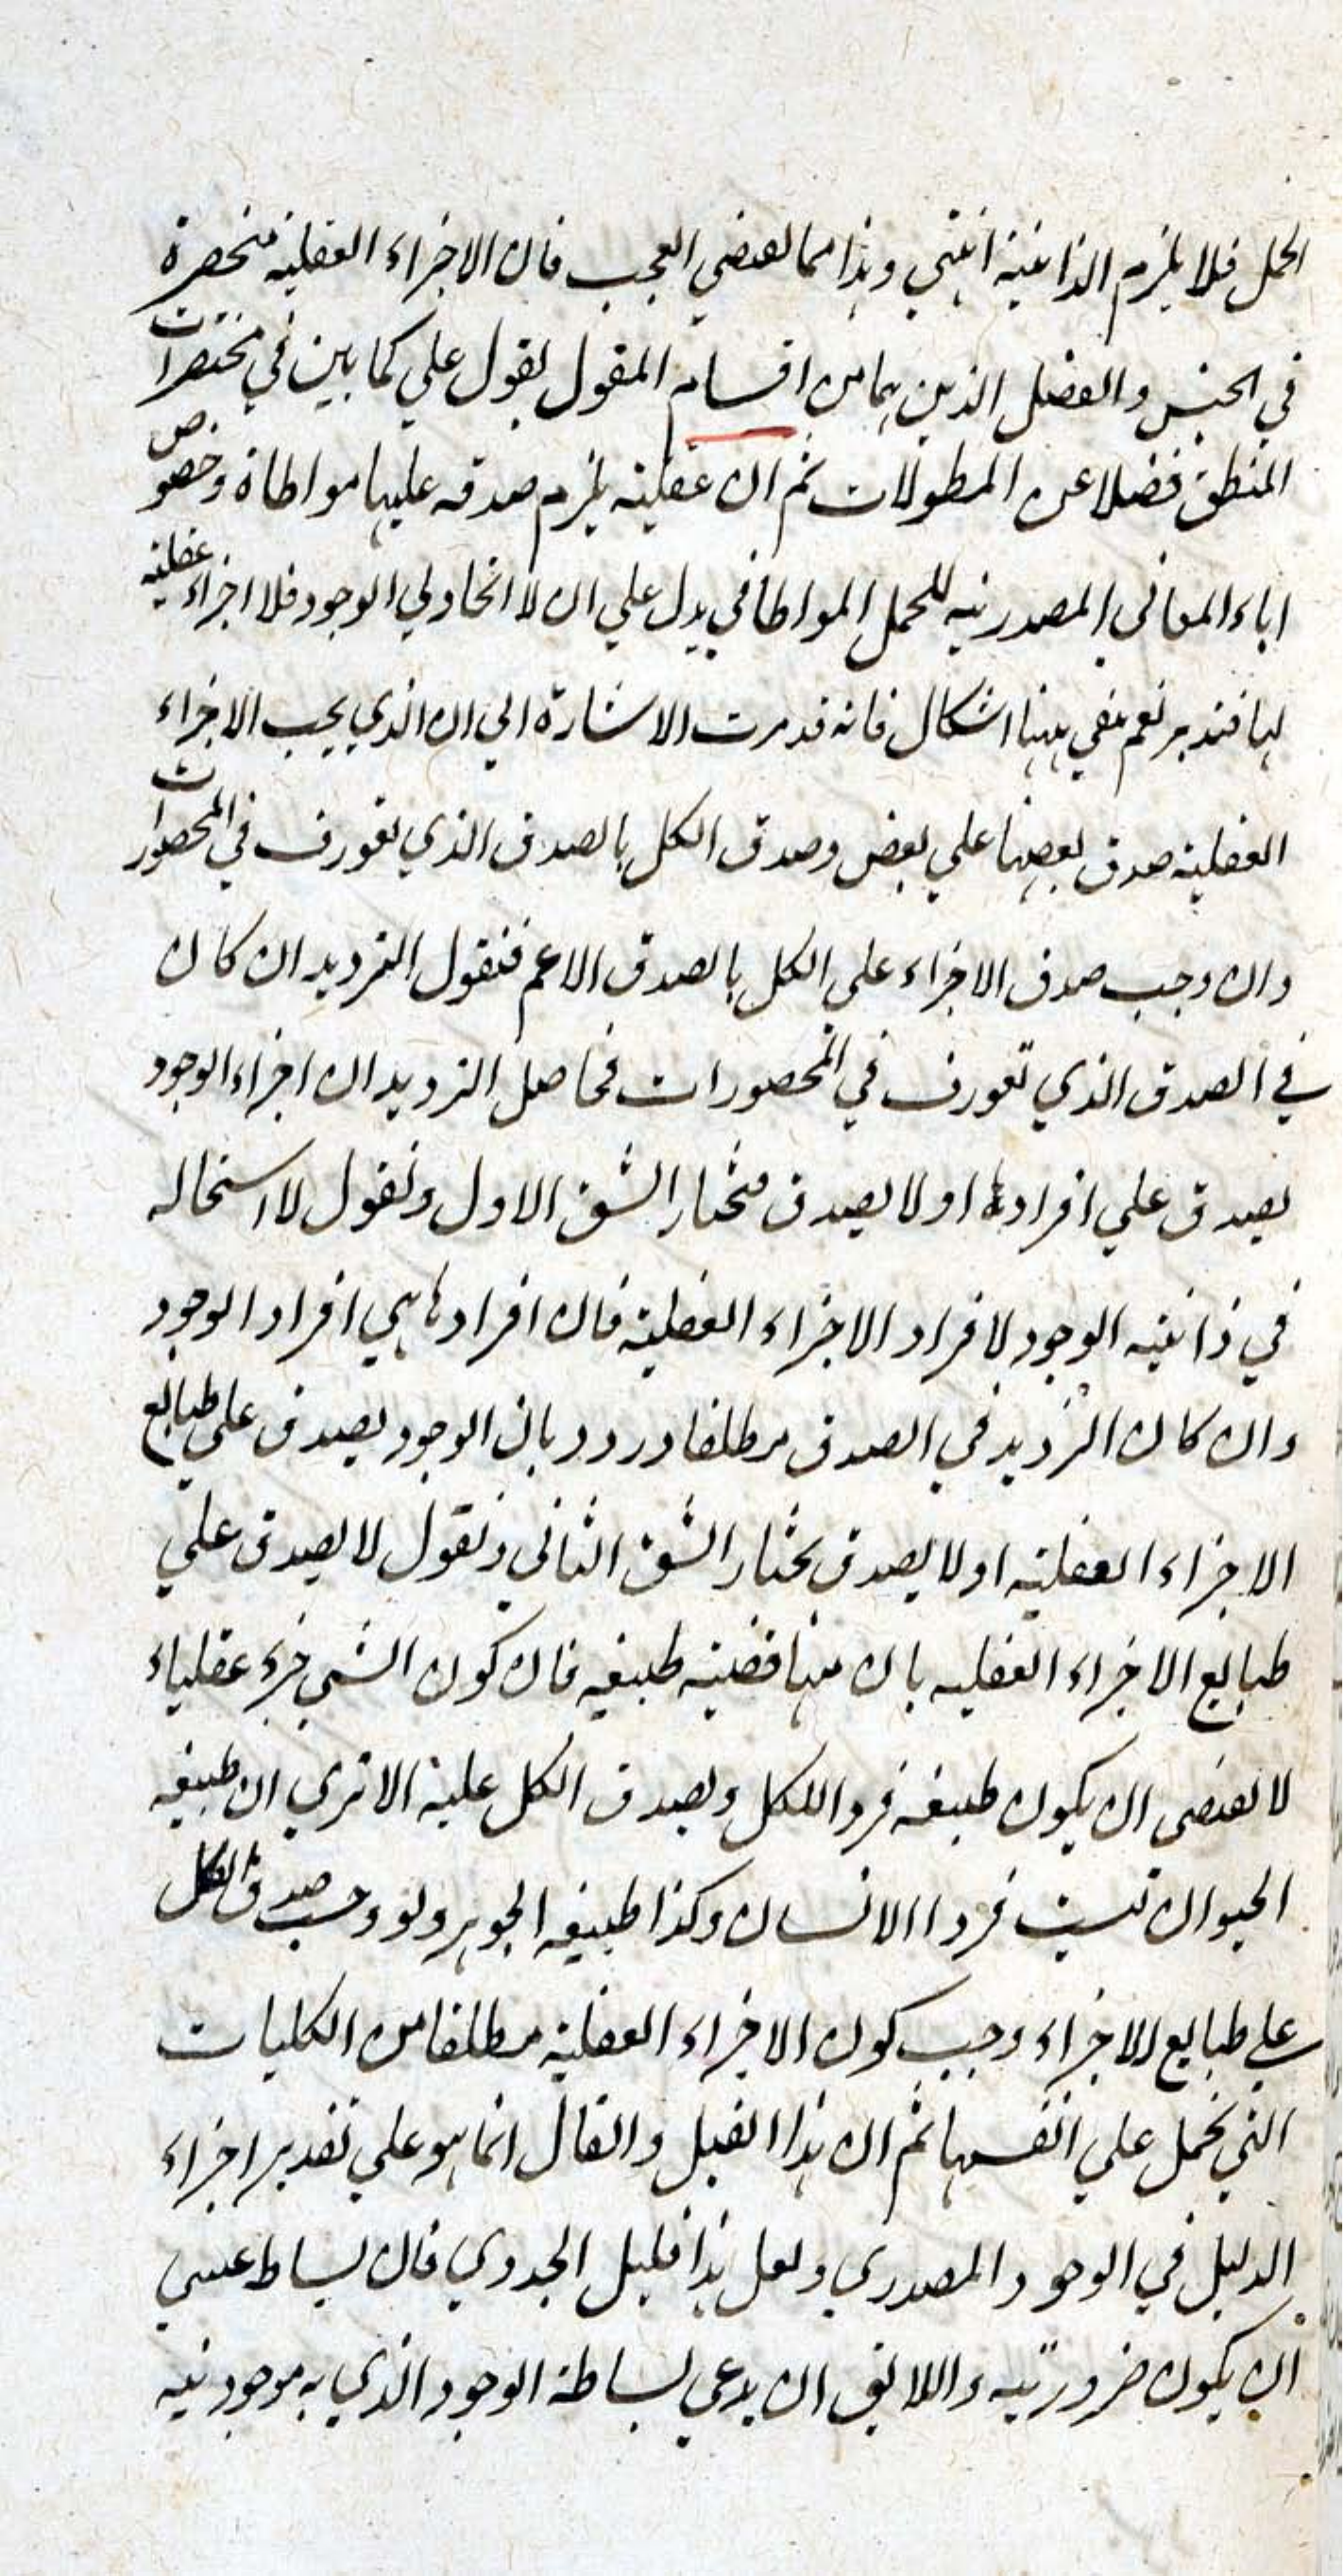 الحمل فلا يلزم الذاتية انتهي وهذا مما يقضي العجب فان الاجزاء العقلية منحصرة
في الجنس والفصل الذين هما من اقسام المقول بقول علي كما بين في مختصرات
المنطق فضلا عن المطولات ثم ان عقلية يلزم صدقه عليها مواطاة وخصوص
اباء المعاني المصدرية للحمل المواطاتي يدل علي ان لا اتحاد في الوجود فلا اجزاء عقلية
لها فتدبر نعم بقي ههنا اشكال فانه قد مرت الاشارة الي ان الذي يجب الاجزاء
العقلية صدق بعضها علي بعض وصدق الكل بالصدق الذي تعورف في المحصورات
وان وجب صدق الاجزاء علي الكل بالصدق الاعم فنقول الترديد ان كان
في الصدق الذي تعورف في المحصورات فحاصل الترديد ان اجزاء الوجود
يصدق علي افرادها او لا يصدق فنختار الشق الاول ونقول لا استحاله
في ذاتية الوجود لافراد الاجزاء العقلية فان افرادها هي افراد الوجود
وان كان الترديد في الصدق مطلقا وردد بان الوجود يصدق علي طبايع
الاجزاء العقلية او لا يصدق نختار الشق الثاني ونقول لا يصدق علي
طبايع الاجزاء العقليه بان منها قضية طبيعيه فان كون الشي جزء عقلياء
لا يقتضي ان يكون طبيعة فردا للكل ويصدق الكل عليه الا تري ان طبيعة
الحيوان ليست فردا الانسان وكذا طبيعة الجوهر ولو وجب صدق الكل
علي طبايع الاجزاء وجب كون الاجزاء العقلية مطلقا من الكليات
التي تحمل علي انفسها ثم ان هذا القيل والقال انما هو علي تقدير اجزاء
الدليل في الوجود المصدري ولعل هذا قليل الجدوي فان بساط عسي
ان يكون ضرورتيه واللايق ان يدعي بساطة الوجود الذي به موجودتيه